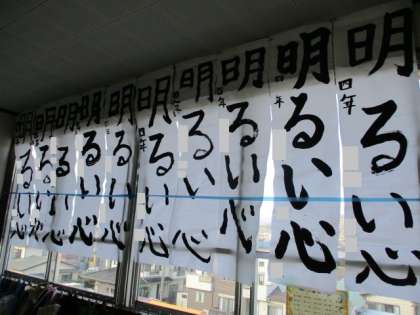 明るい心
四年
明るい心
四年
明るい心
明るい心
明るい心
四年
明るい心
明るい心
明るい心
明るい心
明るい心